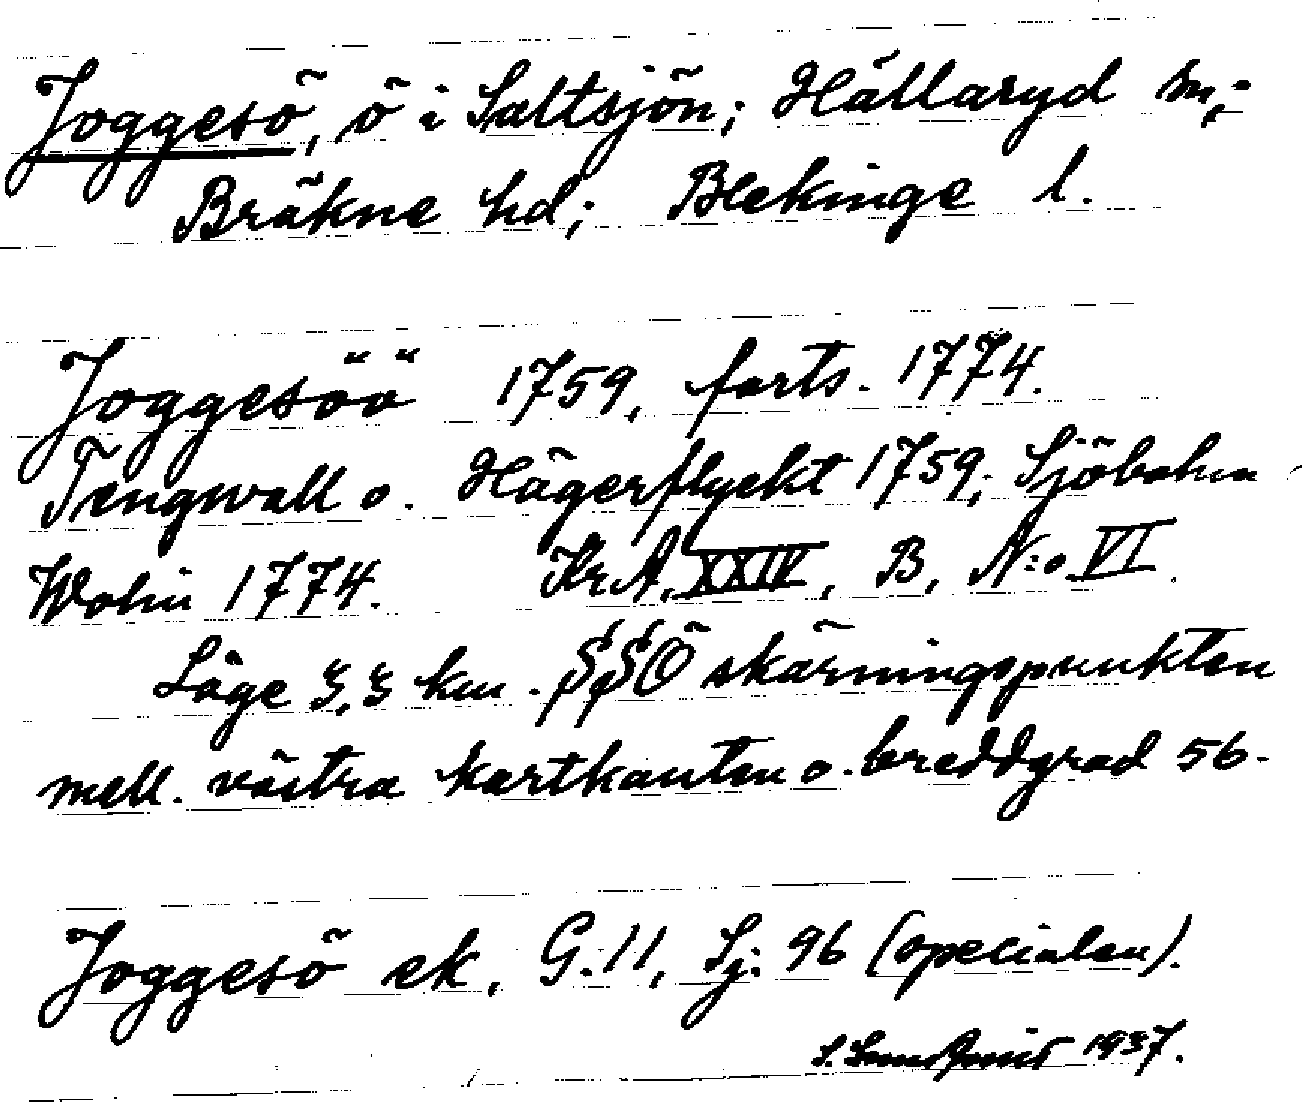 Joggesö, ö i Saltsjön; Hällaryd sn,-
Bräkne hd; Blekinge l.
Joggesöö 1759, forts. 1774.
Tengwall o. Hägerflyckt 1759; Sjöbohm
Wohn 1774. Kr A, XXIV, B, N:o. VI.
Läge 3,3 km. SSÖ skärningspunkten
mell. västra kartkanten o. breddgrad 56.
Joggesö ek, G. 11, Sj: 96 (specialen).
1937.